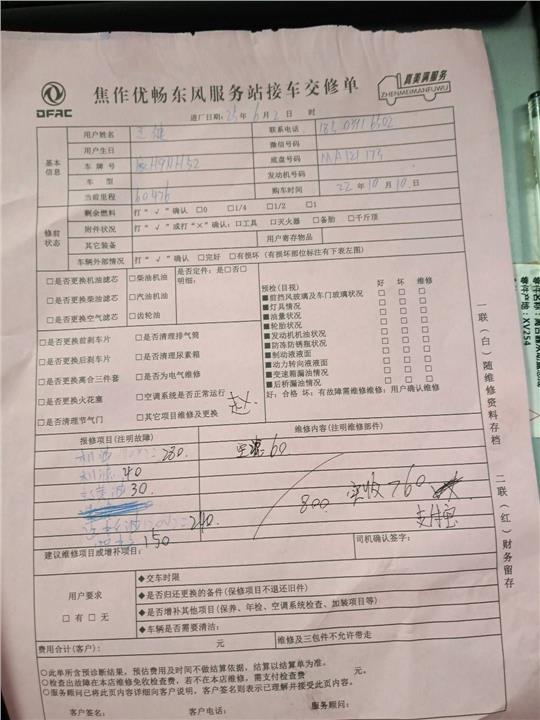 DFAC
焦作优畅东风服务站接车交修单
真美满服务
ZHENMEIMANFUWU
进厂日期：23年6月2日 时
基本信息
用户姓名
联系电话
用户生日
微信号码
车牌号
底盘号码 MA121173
车型
发动机号码
当前里程 60476
购车时间 22年10月10日
修前状态
剩余燃料 打“√”确认 □0 □1/4 □1/2 □1
附件状况 打“√”或打“×”确认：□工具 □灭火器 □备胎 □千斤顶
其它装备 用户寄存物品
车辆外部情况 打“√”确认 □完好 □有损坏（有损坏部位标注有下表左图）
□是否更换机油滤芯 □柴油机油 是否定件：是□否□
明细：
□是否更换柴油滤芯 □汽油机油
□是否更换空气滤芯 □齿轮油
□是否更换前刹车片 □是否清理排气筒
□是否更换后刹车片 □是否清理尿素箱
□是否更换离合三件套 □是否为电气维修
□是否更换火花塞 □空调系统是否正常运行
□是否清理节气门 □其它项目维修及更换
预检（目视） 好 坏 维修
■前挡风玻璃及车门玻璃状况 □ □ □
■灯具情况 □ □ □
■油量状况 □ □ □
■轮胎状况 □ □ □
■发动机机油状况 □ □ □
■防冻防锈瓶状况 □ □ □
■制动液液面 □ □ □
■动力转向液液面 □ □ □
■变速箱漏油情况 □ □ □
■后桥漏油情况 □ □ □
好：合格 坏：有故障需维修维修：用户确认维修
报修项目（注明故障） 维修内容（注明维修部件）
280 空滤 60
40
30
800 实收760
240 支付宝
150
建议维修项目或增补项目：
司机确认签字：
用户要求
□有 □无
◆交车时限
◆是否归还更换的备件（保修项目不退还旧件）
◆是否增补其他项目（保养、年检、空调系统检查、加装项目等）
◆车辆是否需要清洁：
费用合计（客户）： 元 维修及三包件不允许带走
○此单所含预诊断结果，预估费用及时间不做结算依据，结算以结算单为准。
○检查出故障在本店维修免收检查费，若不在本店维修，需支付检查费 元。
○服务顾问已将此页内容详细向客户说明，客户签名则表示已理解并接受此页内容。
客户签名： 客户电话： 服务顾问：
一联（白）随维修资料存档
二联（红）财务留存
零件产地：XV254